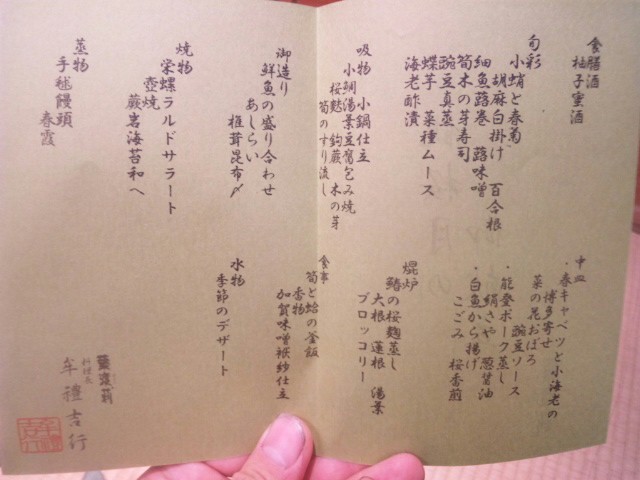 食膳酒
柚子蜜酒
旬彩
小蛸と春菊
胡麻白掛け 百合根
細魚蕗巻 蕗味噌
筍木の芽寿司
豌豆真蒸
蝶芋 菜種ムース
海老酢漬
吸物 小鍋仕立
小鯛湯葉豆腐包み焼
桜麩 鉤蕨 木の芽
筍のすり流し
御造り
鮮魚の盛り合わせ
あしらい
椎茸昆布〆
焼物
栄螺ラルドサラート
壺焼
蕨岩海苔和へ
蒸物
手毬饅頭
春霞
中皿
・春キャベツと小海老の
博多寄せ
豌豆ソース
菜の花おぼろ
・能登ポーク蒸し
絹さや 葱醤油
・白魚から揚げ
こごみ 桜香煎
焜炉
鰆の桜麹蒸し
大根 蓮根 湯葉
ブロッコリー
食事
筍と蛤の釜飯
香物
加賀味噌袱紗仕立
水物
季節のデザート
葉渡莉
料理長
牟禮吉行